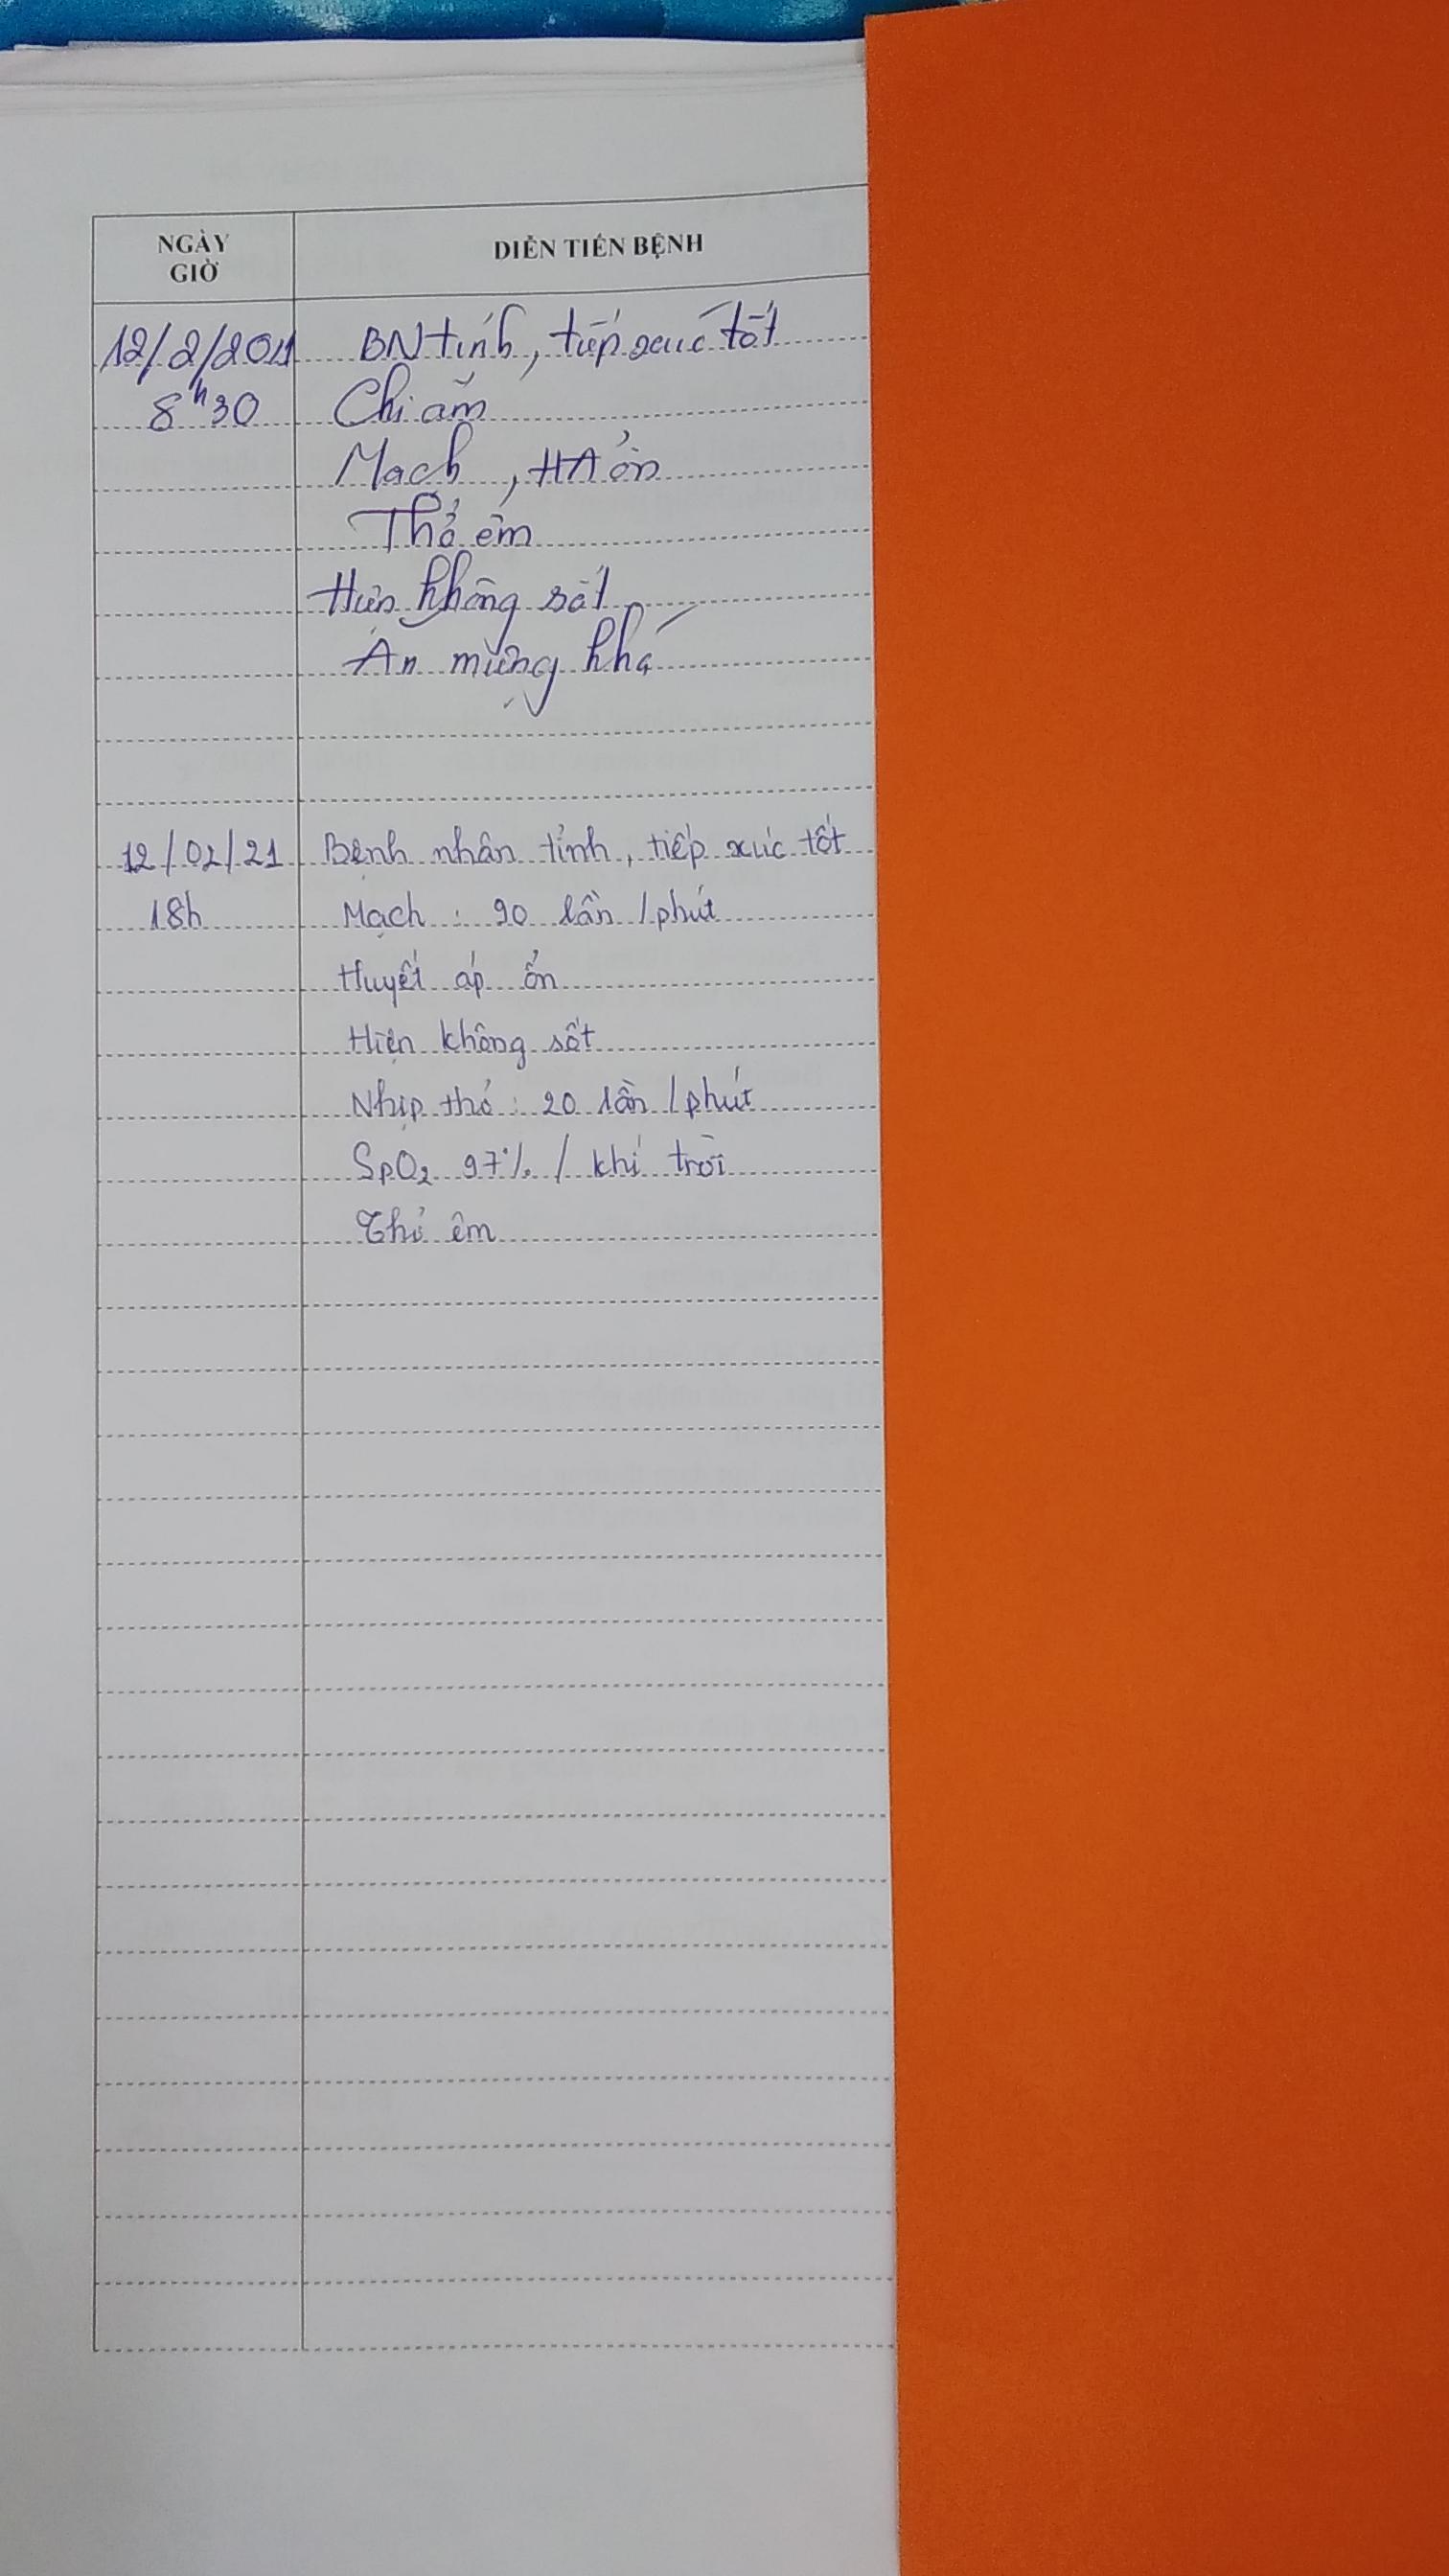 NGÀY
GIỜ
DIỄN TIẾN BỆNH
12/2/2021 BN tỉnh, tiếp xúc tốt
8h30 Chi ấm
Mạch, HA ổn
Thở êm
Hiện không sốt
Ăn miệng khá
12/02/21 Bệnh nhân tỉnh, tiếp xúc tốt
18h Mạch: 90 lần/phút
Huyết áp ổn
Hiện không sốt
Nhịp thở: 20 lần/phút
SpO2 97% / khí trời
Thở êm